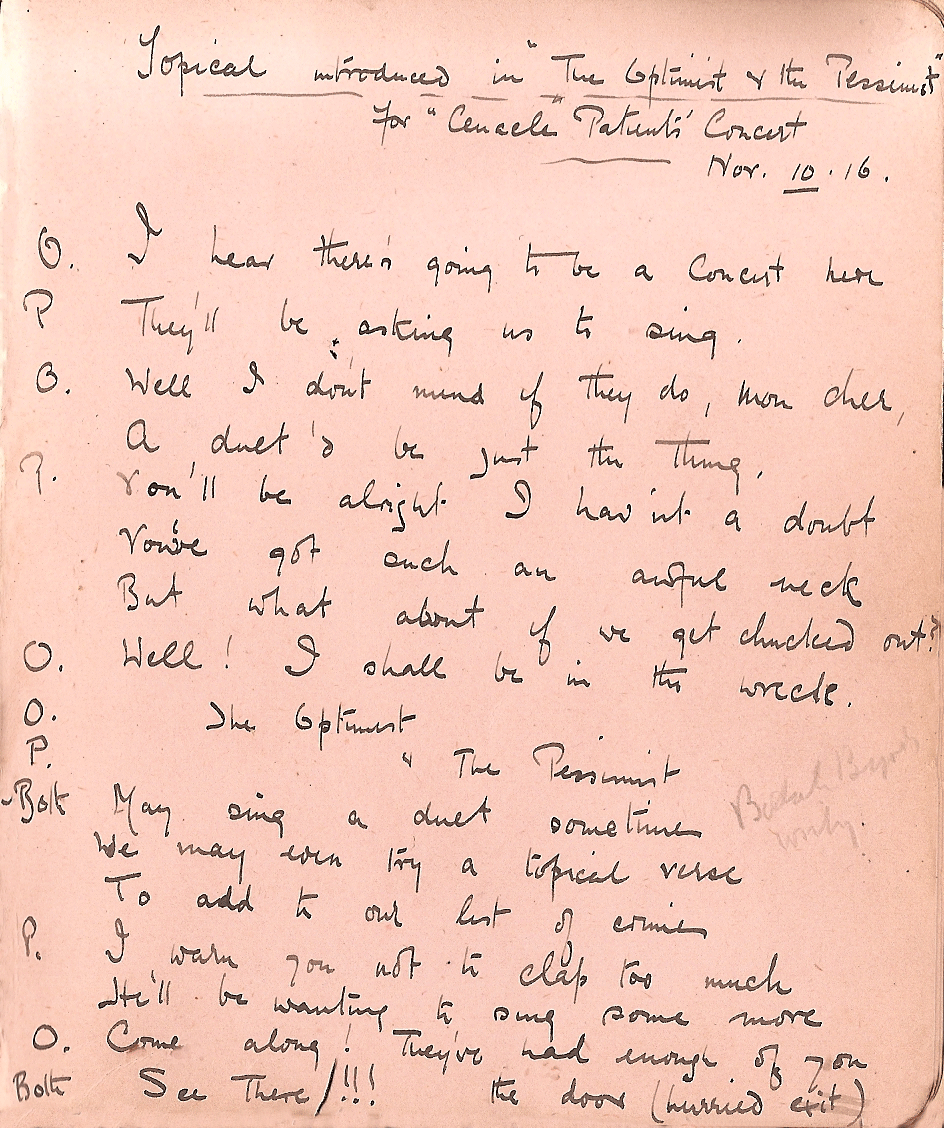 Topical introduced in "The Optimist & the Pessimist"
for "Cenacle" Patients' Concert
Nov. 10. 16.
O. I hear there's going to be a Concert here
P They'll be asking us to sing.
O. Well I don't mind if they do, mon cher,
A duet'd be just the thing.
P. You'll be alright I hav'nt a doubt
You've got such an awful neck
But what about if we get chucked out?
O. Well! I shall be in the wreck.
O. The Optimist
P. " The Pessimist
Both May sing a duet sometimes
We may even try a topical verse
To add to our list of crimes
P. I warn you not to clap too much
He'll be wanting to sing some more
O. Come along! They've had enough of you
Both See There/!!! the door (hurried exit)